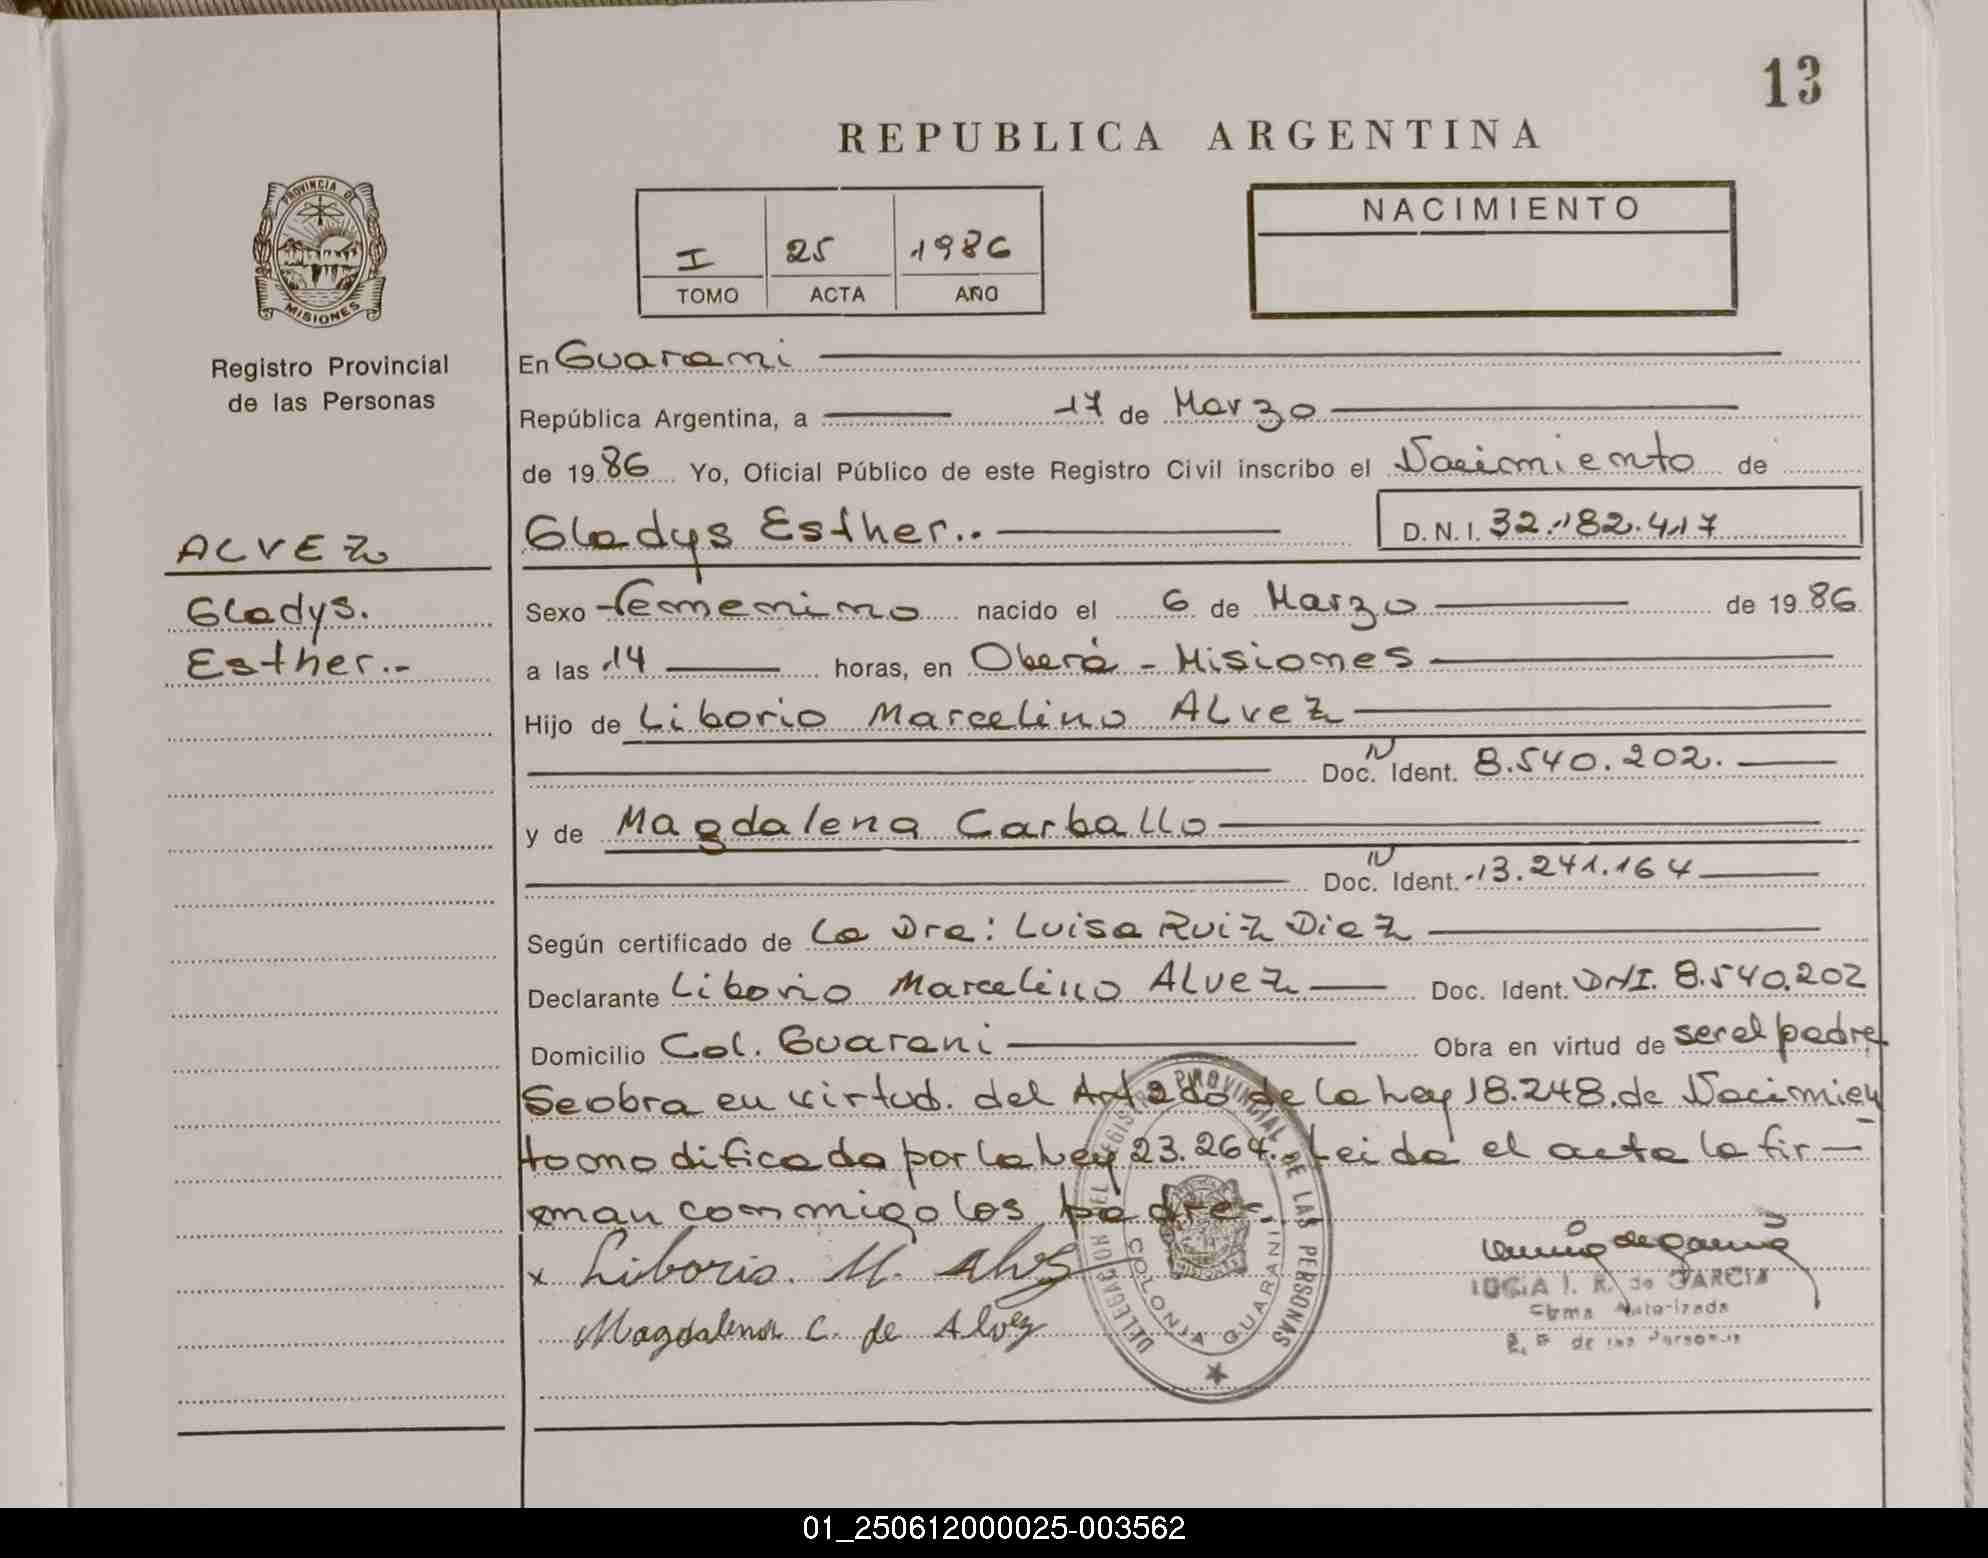 13
REPUBLICA ARGENTINA
PROVINCIA DE
MISIONES
Registro Provincial
de las Personas
I 25 1986
TOMO ACTA AÑO
NACIMIENTO
En Guarani
República Argentina, a 17 de Marzo
de 1986 Yo, Oficial Público de este Registro Civil inscribo el Nacimiento de
ALVEZ
Gladys.
Esther.-
Gladys Esther.. D.N.I. 32.182.417
Sexo femenino nacido el 6 de Marzo de 1986
a las 14 horas, en Oberá - Misiones
Hijo de Liborio Marcelino ALVEZ
Doc. N Ident. 8.540.202.
y de Magdalena Carballo
Doc. N Ident. 13.241.164
Según certificado de La Dra: Luisa Ruiz Diaz
Declarante Liborio Marcelino ALVEZ Doc. Ident. DNI. 8.540.202
Domicilio Col. Guarani Obra en virtud de ser el padre
Se obra en virtud. del Art 2do de la Ley 18.248. de Nacimien
to modificado por la Ley 23.264. Leida el acta la fir-
man conmigo los padres.
x Liborio. M. Alvez
Magdalena C. de Alvez
DELEGACION DEL REGISTRO PROVINCIAL DE LAS PERSONAS
COLONIA GUARANI
I. R. de GARCIA
Firma Autorizada
R. P. de las Personas
01_250612000025-003562